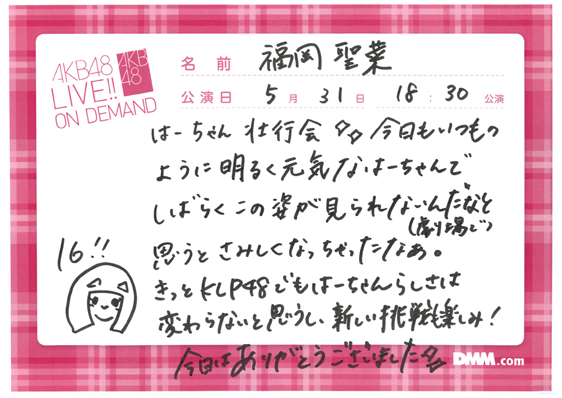 AKB48
LIVE!!
ON DEMAND
AKB
48
名前 福岡聖菜
公演日 5月31日 18:30公演
はーちゃん 壮行会 今日もいつもの
ように明るく元気なはーちゃんで
しばらくこの姿が見られないんだなと
(劇場で)
思うとさみしくなっちゃったなぁ。
きっとKLP48でもはーちゃんらしさは
変わらないと思うし、新しい挑戦も楽しみ!
今日はありがとうございました
16!!
DMM.com